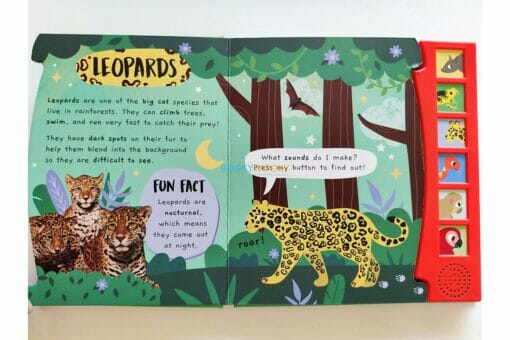 LEOPARDS
Leopards are one of the big cat species that
live in rainforests. They can climb trees,
swim, and run very fast to catch their prey!
They have dark spots on their fur to
help them blend into the background
so they are difficult to see.
FUN FACT
Leopards are
nocturnal,
which means
they come out
at night.
What sounds do I make?
Press my button to find out!
roar!